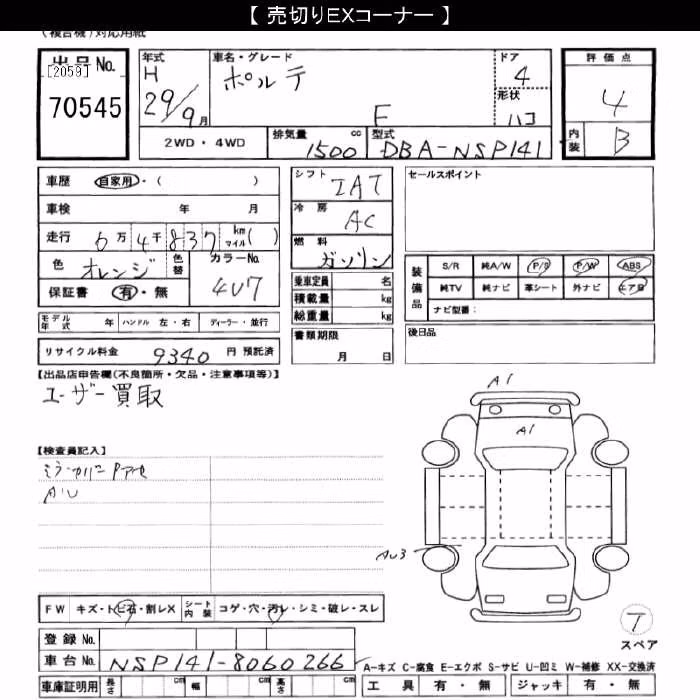 【 売切りEXコーナー 】
(複合機)対応用紙
出品No. [2059] 70545
年式 H 29/9月
車名・グレード ポルテ F
ドア 4
形状 ハコ
評価点 4
内装 B
2WD・4WD
排気量 1500 cc
型式 DBA-NSP141
車歴 自家用・( )
車検 年 月
走行 6万4千837 km マイル( )
色 オレンジ 色替 カラーNo. 4U7
保証書 有・無
シフト IAT
冷房 AC
燃料 ガソリン
乗車定員 名
積載量 kg
総重量 kg
書類期限 月 日
セールスポイント
装備品 S/R 純A/W P/S P/W ABS
純TV 純ナビ 革シート 外ナビ エアB
ナビ型番:
後日品
モデル年式 年 ハンドル 左・右 ディーラー・並行
リサイクル料金 9340 円 預託済
【出品店申告欄(不良箇所・欠品・注意事項等)】
ユーザー買取
【検査員記入】
A1
A1
AU3
FW キズ・トビ石・割レX シート内装 コゲ・穴・汚レ・シミ・破レ・スレ
T
スペア
登録No.
車台No. NSP141-8060266
A-キズ C-腐食 E-エクボ S-サビ U-凹ミ W-補修 XX-交換済
車庫証明用 長さ cm 幅 cm 高さ cm
工具 有・無 ジャッキ 有・無